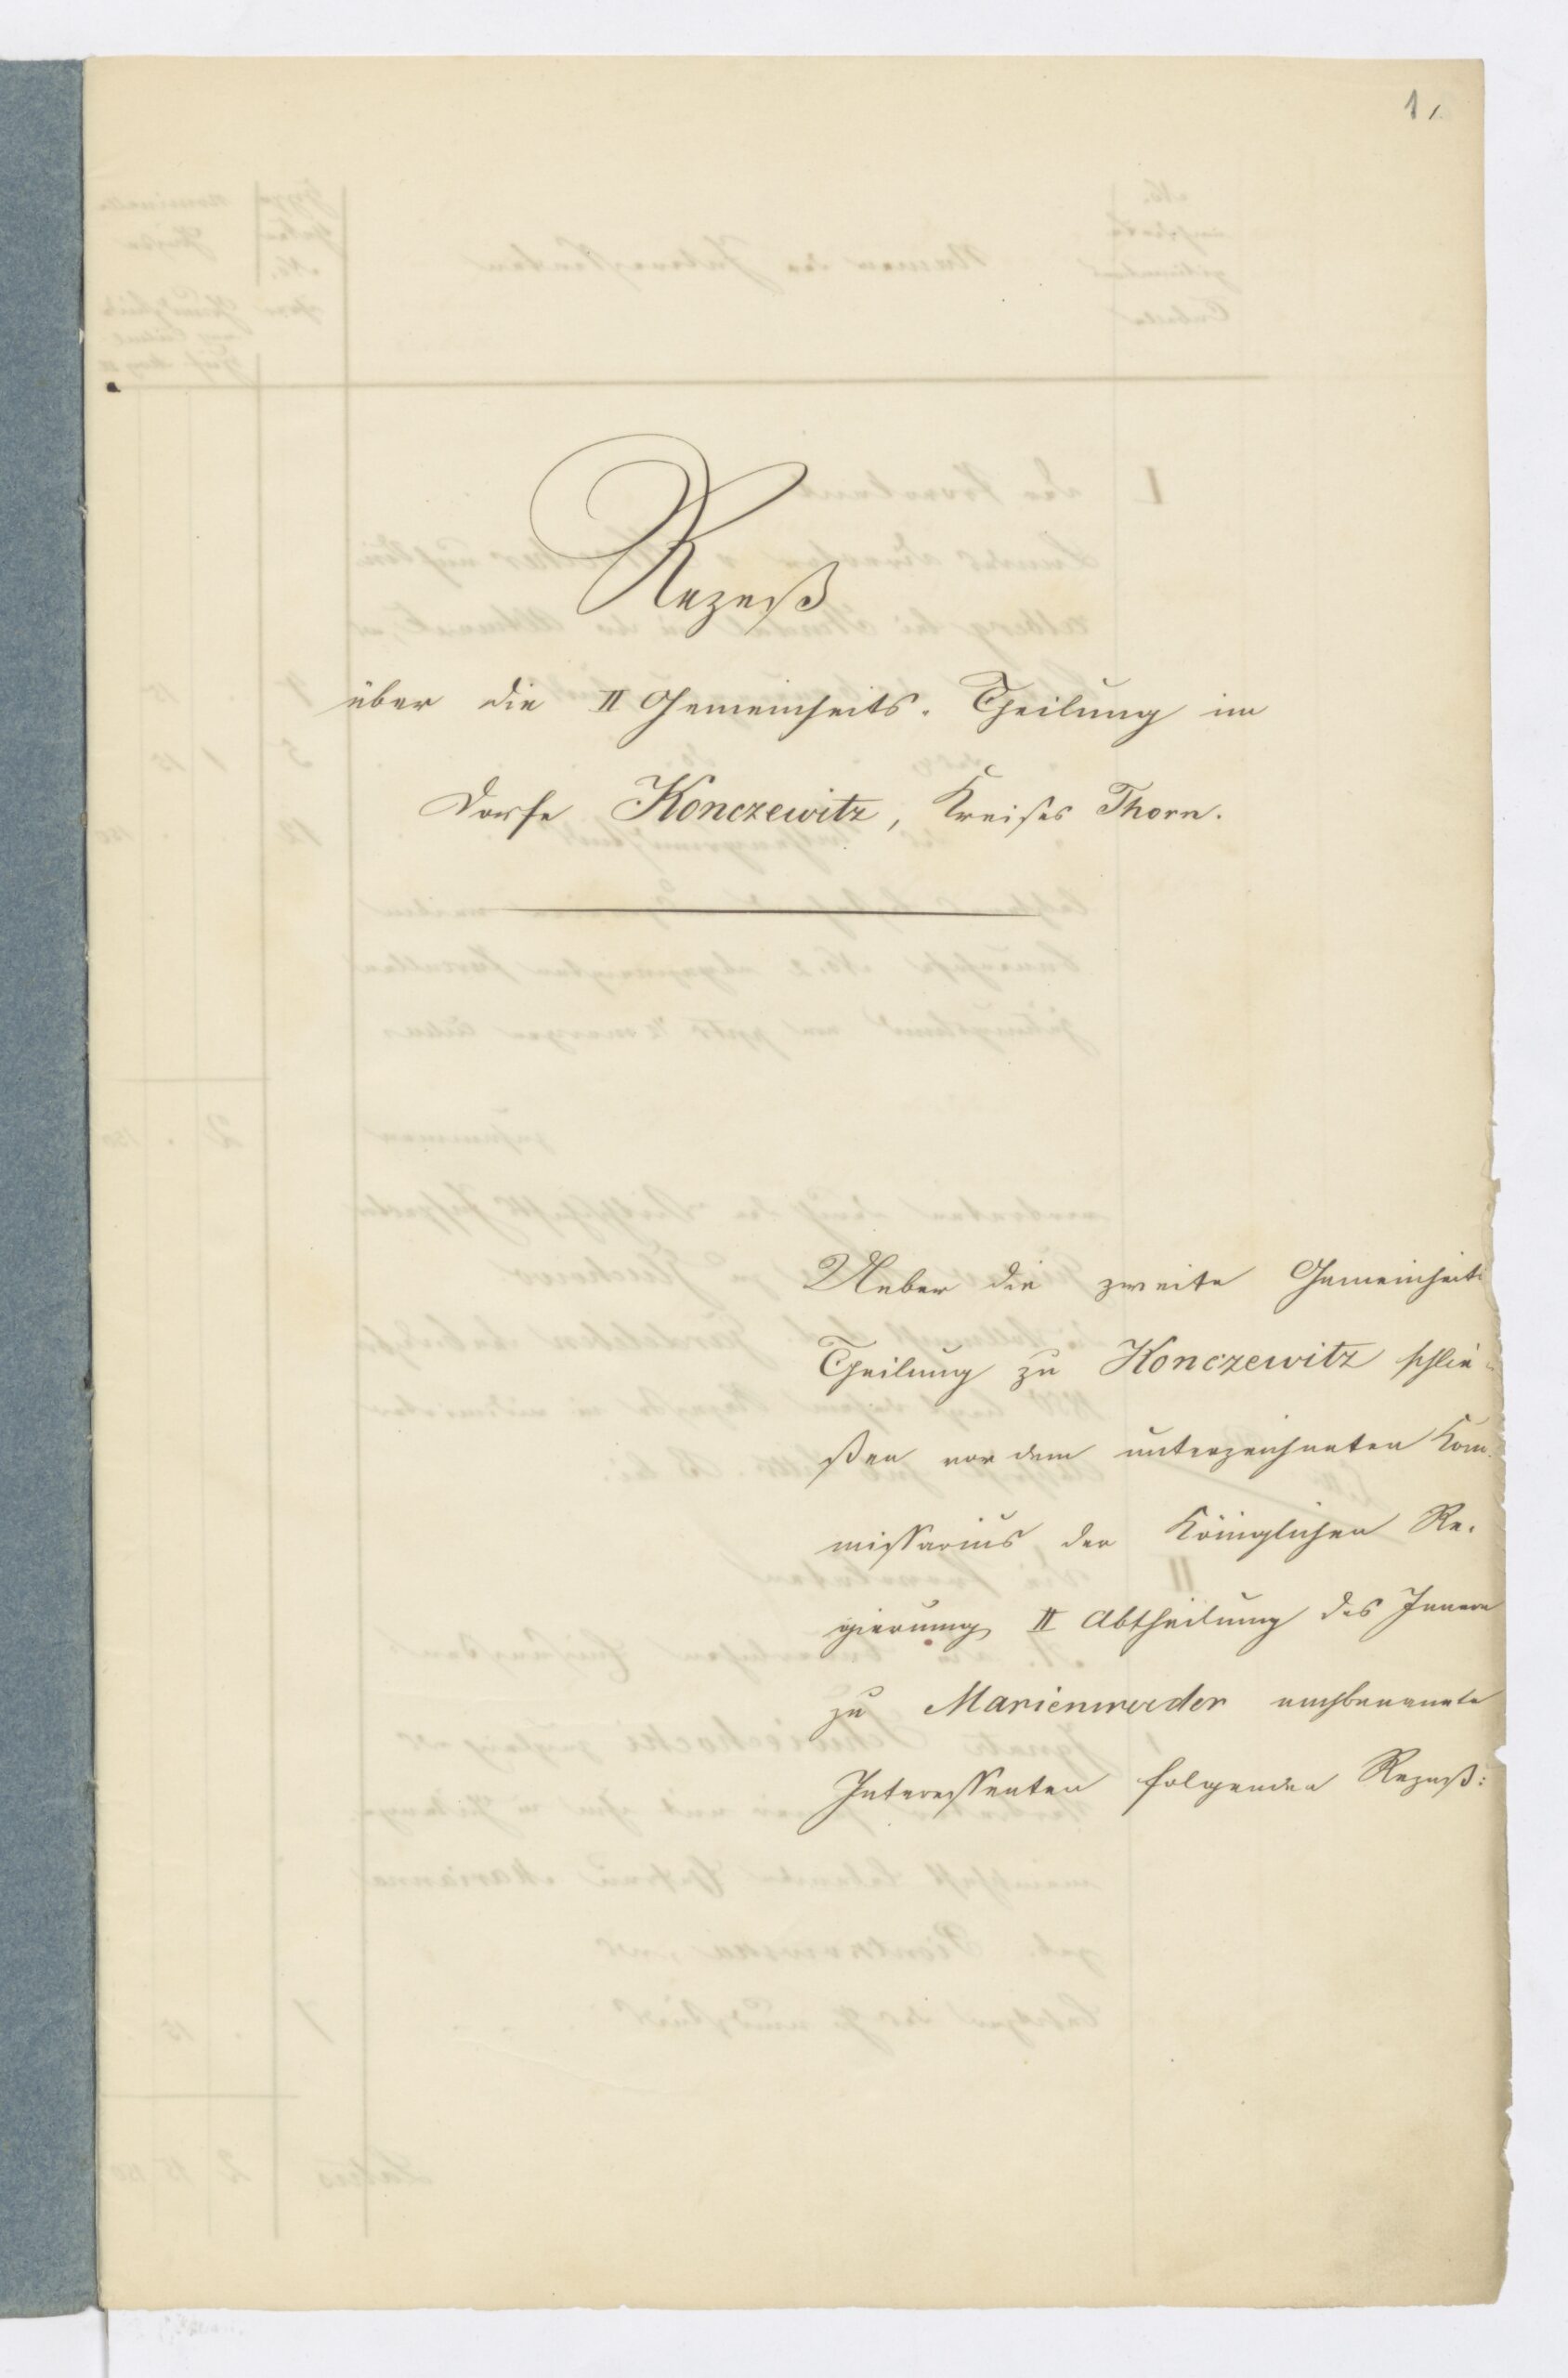 1,
Rezeß
über die II Gemeinheits-Theilung im
Dorfe Konczewitz, Kreises Thorn.
Ueber die zweite Gemeinheits
Theilung zu Konczewitz schlie-
ßen vor dem unterzeichneten Kom-
missarius der Königlichen Re-
gierung II Abtheilung des Innern
zu Marienwerder nachbenannte
Interessenten folgenden Rezeß: